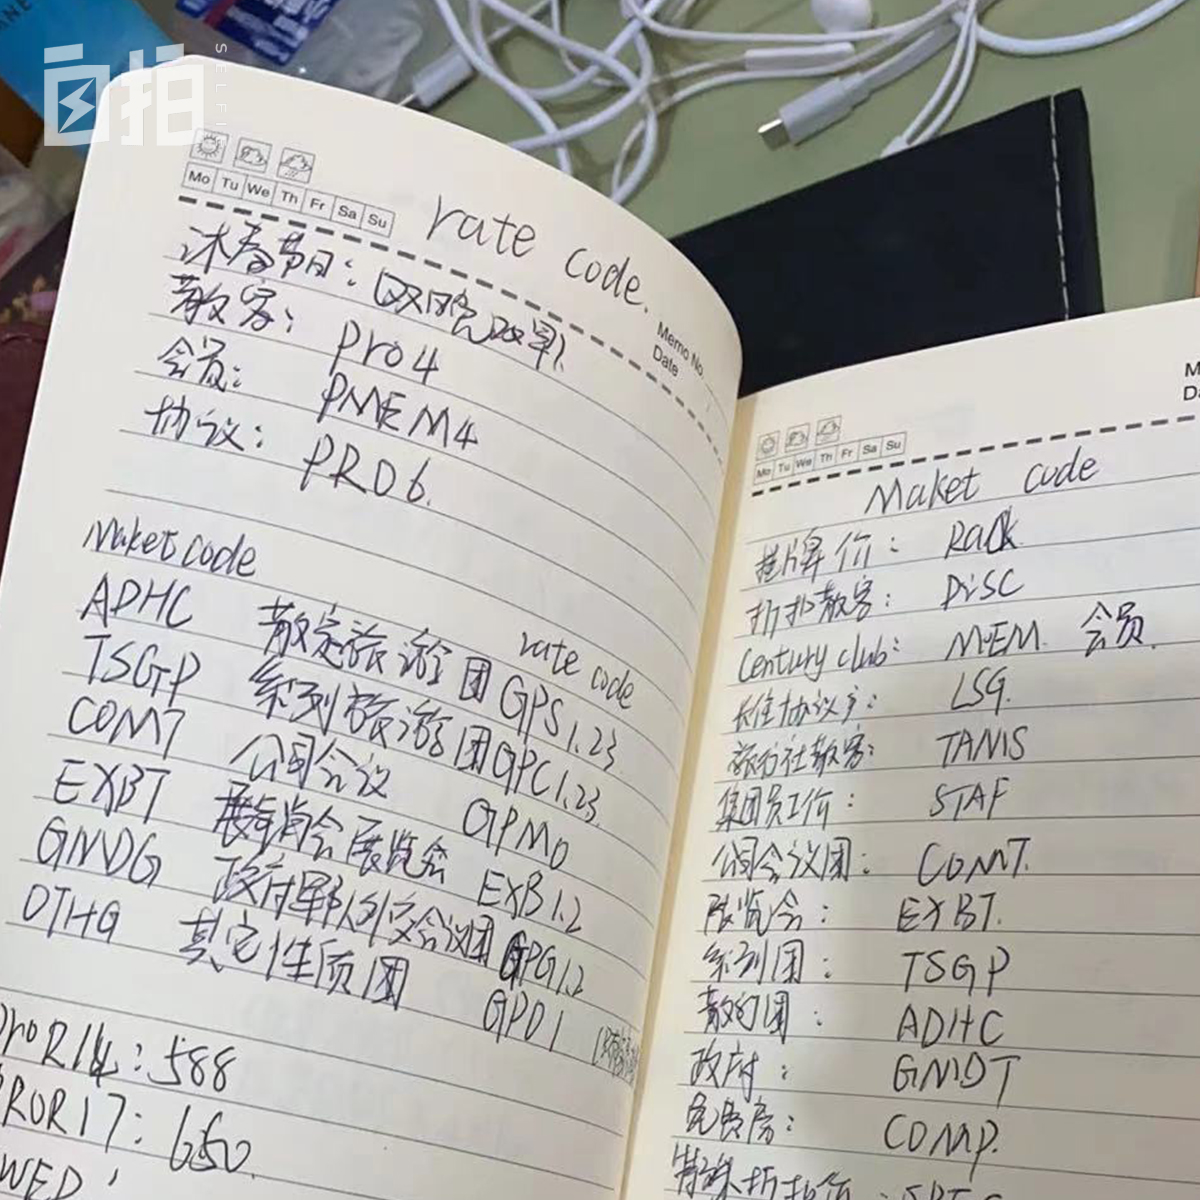 自拍
SELFIE
Mo Tu We Th Fr Sa Su
rate code.
Memo No.
Date
沐春节日:
散客: Pro4
会员: PMEM4
协议: PRO6.
Maket code
rate code
ADHC 散定旅游团 GPS1.23
TSGP 系列旅游团 GPC1.23
COMT 公司会议 GPMO
EXBT 展览会 EXB1.2
GMDG 政府军队外交会议团 GPG1.2
OTHG 其它性质团 GPO1
ProR14: 588
PROR17: 650
WED
Mo Tu We Th Fr Sa Su
Maket code
挂牌价: Rack
折扣散客: DiSC
Century club: MEM. 会员.
长住协议户: LSG.
旅行社散客: TANIS
集团员工价: STAF
公司会议团: COMT.
展览会: EXBT.
系列团: TSGP
散的团: ADHC
政府: GMDT
免费房: COMP.
特殊折扣价: